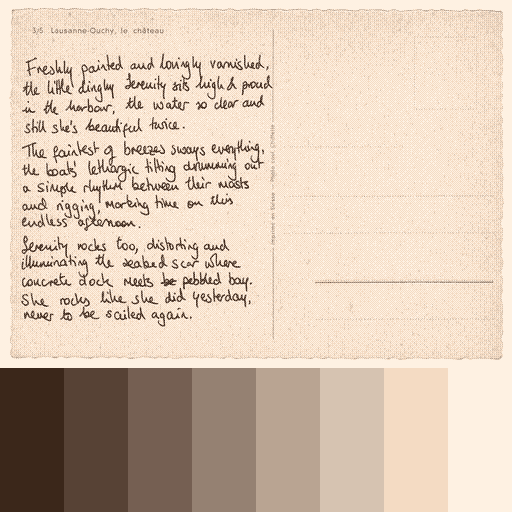 3/5 Lausanne-Ouchy, le château
Freshly painted and lovingly varnished,
the little dinghy Serenity sits high & proud
in the harbour, the water so clear and
still she's beautiful twice.
The faintest of breezes sways everything,
the boats' lethargic tilting drumming out
a simple rhythm between their masts
and rigging, marking time on this
endless afternoon.
Serenity rocks too, distorting and
illuminating the seabed scar where
concrete dock meets pebbled bay.
She rocks like she did yesterday,
never to be sailed again.